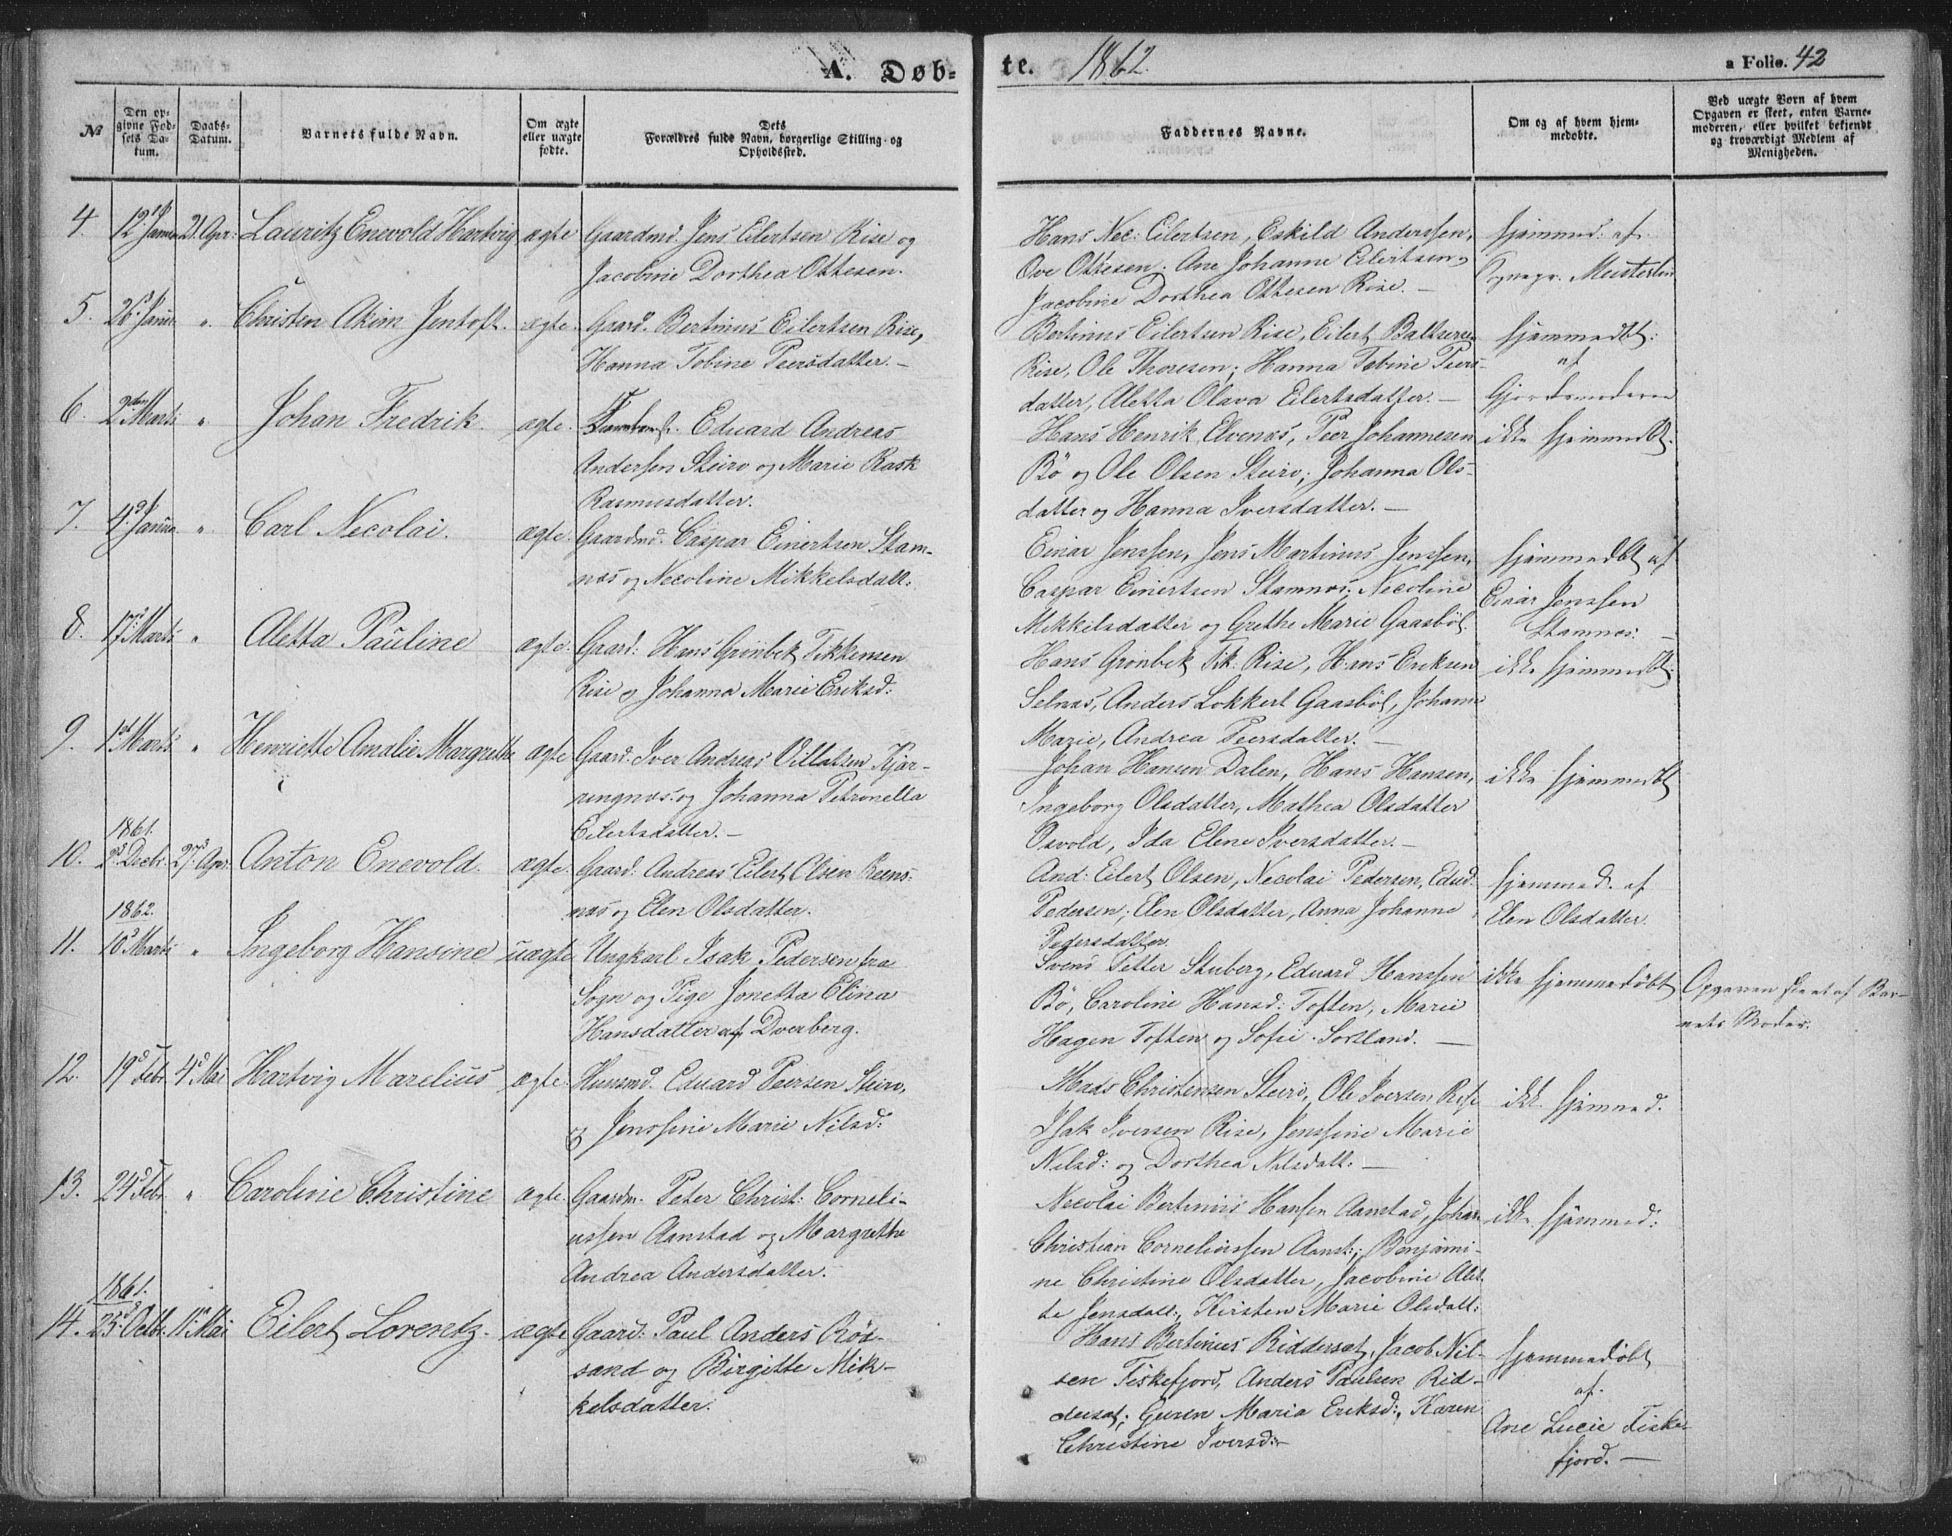 A. Døb-
te. 1862.
a Folio. 42
№
Den op-
givne Fød-
sels Da-
tum.
Daabs-
Datum.
Barnets fulde Navn.
Om ægte
eller uægte
fødte.
Dets
Forældres fulde Navn, borgerlige Stilling og
Opholdssted.
Faddernes Navne.
Om og af hvem hjem-
medøbte.
Ved uægte Børn af hvem
Opgaven er skeet, enten Barne-
moderen, eller hvilket bekjendt
og troværdigt Medlem af
Menigheden.
4. 12 Janu 21. Apr: Lauritz Enevold Hartvig ægte Gaardmd. Jens Eilertsen Rise og
Jacobine Dorthea Ottesen.
Hans Nec: Eilertsen, Eskild Anderssen,
Ove Ottesen. Ane Johanne Eilertsen,
Jacobine Dorthea Ottesen Rise. —
hjemmed: af
Sognepr.
5. 26d Janu. „ Christen Akim Jentoft. ægte. Gaard. Bertinus Eilertsen Rise,
Hanna Tobine Peersdatter. —
Bertinus Eilertsen Rise, Eilert Baltsersen
Rise, Ole Thoresen; Hanna Tobine Peers-
datter, Aletta Olava Eilertsdatter. —
hjemmedbt:
af
Gjordemoderen
6. 2den Marts „ Johan Fredrik. ægte. Eduard Andreas
Andersen Steiro og Marie Rask
Rasmusdatter.
Hans Henrik Elvenæs, Peer Johannesen
Bø og Ole Olsen Steiro; Johanna Ols-
datter og Hanna Iversdatter. —
ikke hjemmedbt.
7. 4d Janua „ Carl Necolai. ægte. Gaardmd. Caspar Einertsen Stam-
næs og Necoline Mikkelsdatt:
Einar Jenssen, Jens Martinus Jenssen,
Caspar Einertsen Stamnæs; Necoline
Mikkelsdatter og Grethe Marie Gaasbøl
hjemmedbt af
Einar Jenssen
Stamnæs. —
8. 17d Marts „ Aletta Pauline ægte. Gaard: Hans Grönbek Tikkensen
Rise og Johanna Marie Eriksd:
Hans Grönbek Tik: Rise, Hans Eriksen
Selnæs, Anders Lokkert Gaasbøl, Johanne
Marie, Andrea Peersdatter. —
ikke hjemmedbt.
9. 1st Marts „ Henriette Amalie Margrethe ægte Gaard. Iver Andreas Villatsen Kjær-
ringnæs. og Johanna Petronella
Eilertsdatter. —
Johan Hansen Dalen, Hans Hansen,
Ingeborg Olsdatter, Mathea Olsdatter
Osvold, Ida Elene Iversdatter. —
ikke hjemmedbt
1861.
10. 2d Decbr. 27d Apr. Anton Enevold. ægte. Gaard: Andreas Eilert Olsen Reens-
næs og Elen Olsdatter.
And: Eilert Olsen, Necolai Pedersen, Edud:
Pedersen; Elen Olsdatter, Anna Johanne
Pedersdatter
hjemmed. af
Elen Olsdatter.
1862.
11. 10d Marts „ Ingeborg Hansine uægte Ungkarl Isak Pedersen fra
Sogn og Pige Jonetta Elina
Hansdatter af Dverberg.
Svens Petter Stuberg, Eduard Hanssen
Bø, Caroline Hansd: Toften, Marie
Hagen Toften og Sofie Sortland. —
ikke hjemmedøbt
Opgaven skeet af Bar-
nets Moder.
12. 19d Febr. 4d Mai Hartvig Marelius ægte. Huusmd. Eduard Peersen Steiro,
og Jenssine Marie Nilsd:
Mads Christensen Steiro, Ole Iversen Rise
Isak Iversen Rise, Jenssine Marie
Nilsd: og Dorthea Nilsdatt: —
ikke hjemmed.
13. 24d Febr. „ Caroline Christine ægte. Gaardm. Peter Christ: Corneli-
ussen Aanstad og Margrethe
Andrea Andersdatter.
Necolai Bertinus Hansen Aanstad, Johan
Christian Corneliussen Aanst:; Benjami-
ne Christine Olsdatter, Jacobine Alet-
te Jensdatt:, Kirsten Marie Olsdatt:
ikke hjemmed:
1861.
14. 25d Octbr. 11d Mai Eilert Lorentz. ægte Gaard: Paul Anders Röd-
sand og Birgitte Mik-
kelsdatter.
Hans Bertinus Riddersæt, Jacob Nil-
sen Fiskefjord, Anders Paulsen Rid-
dersæt; Maria Eriksd:, Karen
Christine Iversd:—
hjemmedøbt
af
Ane Lucie Fiske-
fjord. —